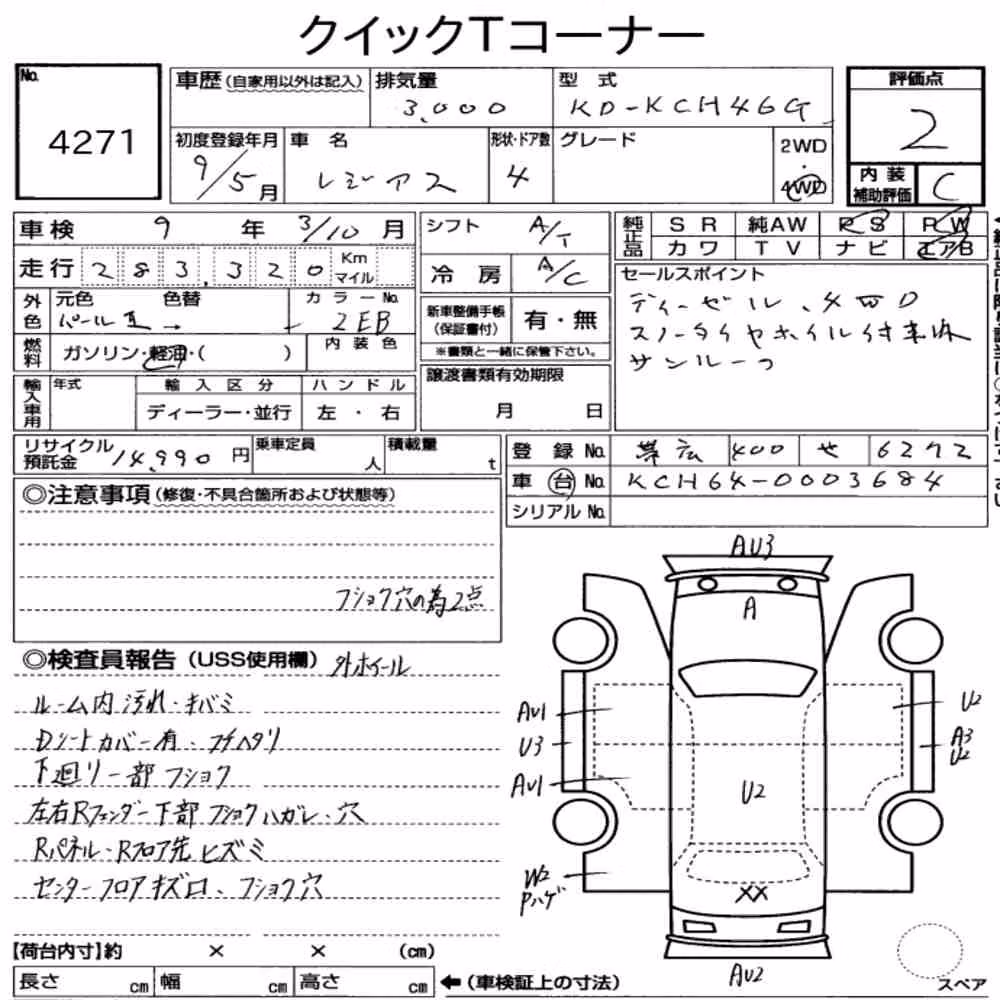 クイックTコーナー
No.
4271
車歴(自家用以外は記入)
排気量
3,000
型式
KD-KCH46G
評価点
2
内装
補助評価
C
初度登録年月
9/5月
車名
レジアス
形状・ドア数
4
グレード
2WD
・
4WD
車検 9年 3/10月
シフト A/T
純正品
SR 純AW PS PW
カワ TV ナビ エアB
走行 283,320 Km マイル
冷房 A/C
セールスポイント
ディーゼル、4WD
スノータイヤホイル付車内
サンルーフ
外色
元色 色替
パール
カラーNo.
2EB
新車整備手帳
(保証書付)
有・無
※書類と一緒に保管下さい。
燃料
ガソリン・軽油・( )
内装色
譲渡書類有効期限
月 日
輸入車用
年式
輸入区分
ハンドル
ディーラー・並行
左・右
リサイクル
預託金
14,990円
乗車定員
人
積載量
t
登録No. 帯広 400 せ 6272
車台No. KCH64-0003684
シリアルNo.
◎注意事項(修復・不具合箇所および状態等)
フショク穴の為2点
◎検査員報告(USS使用欄) 外ホイール
ルーム内汚れ・キバミ
Dシートカバー有・フチヘタリ
下廻り一部フショク
左右Rフェンダー下部フショクハガレ・穴
Rパネル・Rフロア先ヒズミ
センターフロアキズ凹、フショク穴
AU3
A
AU1
U3
AU1
U2
A3
U2
U2
W2
Pハゲ
XX
AU2
【荷台内寸】約 × × (cm)
長さ cm 幅 cm 高さ cm ←(車検証上の寸法)
スペア